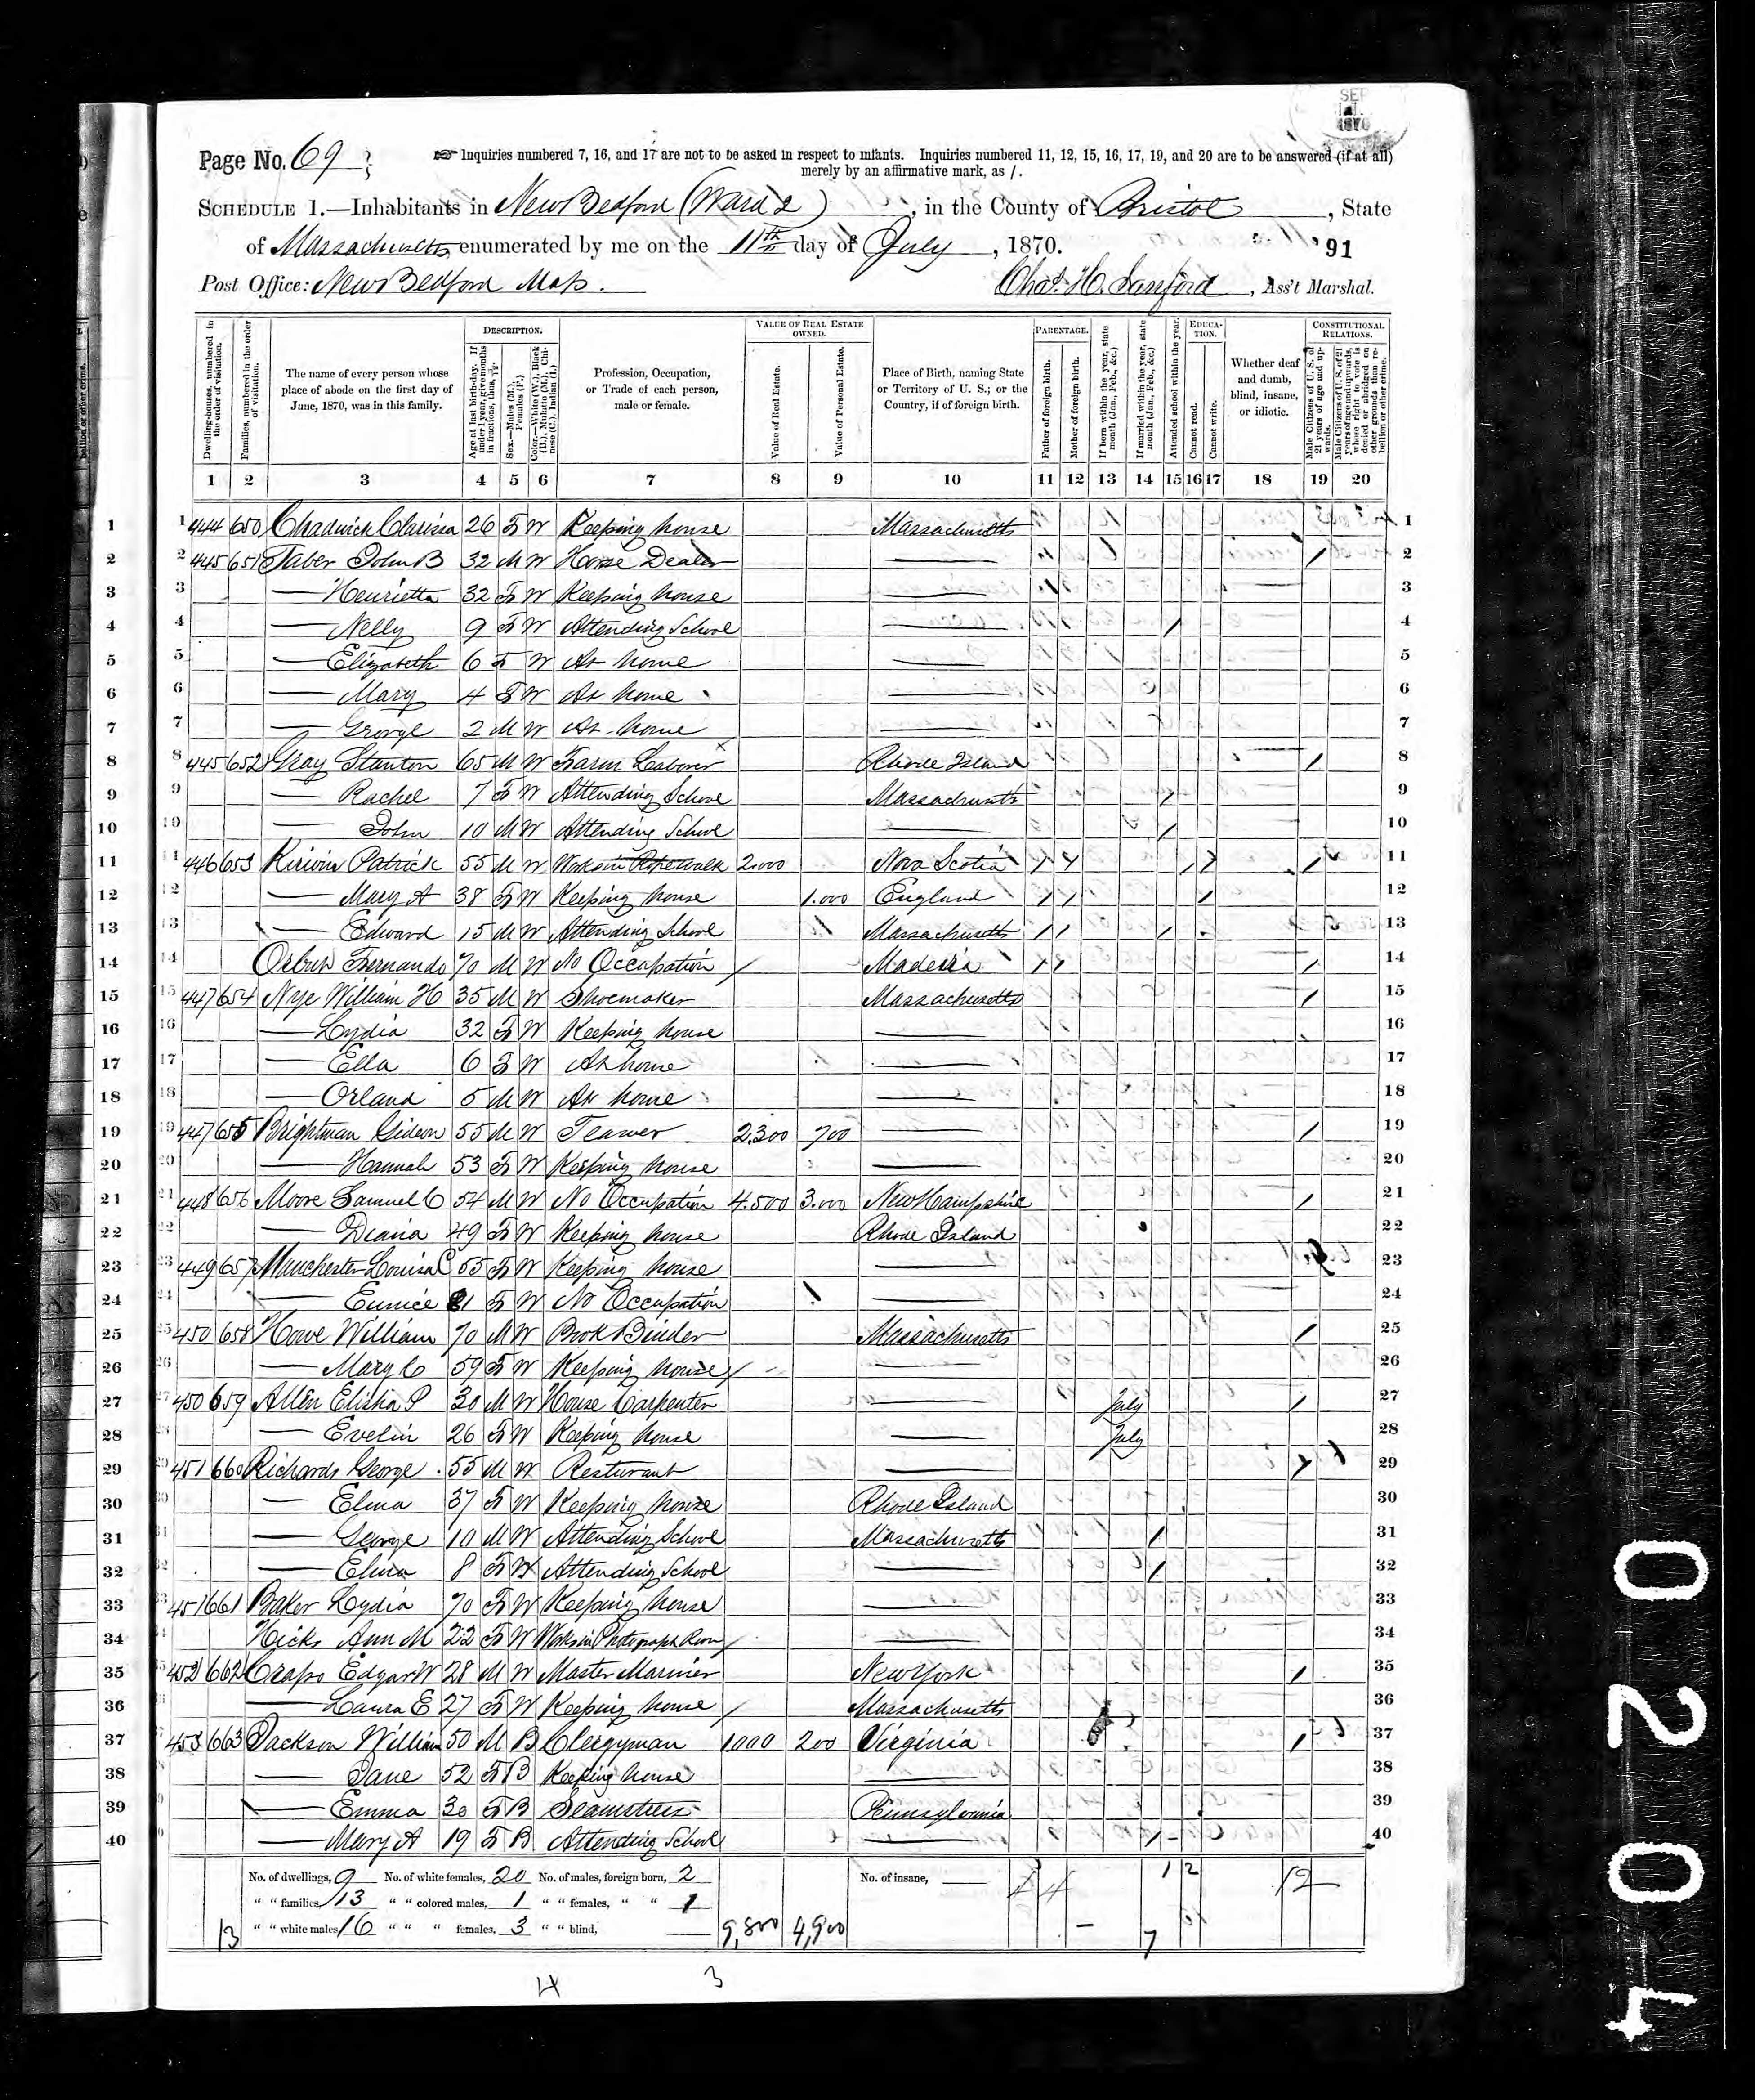 SEP
1870
Page No. 69
Inquiries numbered 7, 16, and 17 are not to be asked in respect to infants. Inquiries numbered 11, 12, 15, 16, 17, 19, and 20 are to be answered (if at all)
merely by an affirmative mark, as /.
SCHEDULE 1.—Inhabitants in New Bedford (Ward 2), in the County of Bristol, State
of Massachusetts, enumerated by me on the 11th day of July, 1870.
91
Post Office: New Bedford Mass. Chas. H. Sanford, Ass't Marshal.
DESCRIPTION. VALUE OF REAL ESTATE OWNED. PARENTAGE. EDUCATION. CONSTITUTIONAL RELATIONS.
Dwelling-houses, numbered in the order of visitation.
Families, numbered in the order of visitation.
The name of every person whose place of abode on the first day of June, 1870, was in this family.
Age at last birth-day. If under 1 year, give months in fractions, thus, 3/12.
Sex.—Males (M.), Females (F.)
Color.—White (W.), Black (B.), Mulatto (M.), Chinese (C.), Indian (I.)
Profession, Occupation, or Trade of each person, male or female.
Value of Real Estate.
Value of Personal Estate.
Place of Birth, naming State or Territory of U. S.; or the Country, if of foreign birth.
Father of foreign birth.
Mother of foreign birth.
If born within the year, state month (Jan., Feb., &c.)
If married within the year, state month (Jan., Feb., &c.)
Attended school within the year.
Cannot read.
Cannot write.
Whether deaf and dumb, blind, insane, or idiotic.
Male Citizens of U. S. of 21 years of age and upwards.
Male Citizens of U. S. of 21 years of age and upwards, whose right to vote is denied or abridged on other grounds than rebellion or other crime.
1 2 3 4 5 6 7 8 9 10 11 12 13 14 15 16 17 18 19 20
1 444 650 Chadwick Clarissa 26 F W Keeping house Massachusetts 1
2 445 651 Taber John B 32 M W Horse Dealer — / 2
3 — Henrietta 32 F W Keeping house — 3
4 — Nelly 9 F W Attending School — / 4
5 — Elizabeth 6 F W At home — 5
6 — Mary 4 F W At home — 6
7 — George 2 M W At home — 7
8 445 652 Gray Stanton 65 M W Farm Laborer Rhode Island / 8
9 — Rachel 7 F W Attending School Massachusetts / 9
10 — John 10 M W Attending School — / 10
11 446 653 Patrick 55 M W Works in Ropewalk 2.000 Nova Scotia / / / / / 11
12 — Mary A 38 F W Keeping house 1.000 England / / / 12
13 — Edward 15 M W Attending School Massachusetts / / / 13
14 Fernando 70 M W No Occupation Madeira / / / 14
15 447 654 Nye William H 35 M W Shoemaker Massachusetts / 15
16 — Lydia 32 F W Keeping house — 16
17 — Ella 6 F W At home — 17
18 — Orland 5 M W At home — 18
19 447 655 Brightman Gideon 55 M W 2,300 700 — / 19
20 — Hannah 53 F W Keeping house — 20
21 448 656 Moore Samuel C 54 M W No Occupation 4.500 3.000 New Hampshire / 21
22 — Diana 49 F W Keeping house Rhode Island 22
23 449 657 Manchester Louisa C 55 F W Keeping house — 23
24 — Eunice 81 F W No Occupation — 24
25 450 658 Howe William 70 M W Book Binder Massachusetts / 25
26 — Mary C 59 F W Keeping house — 26
27 450 659 Allen Elisha P 30 M W House Carpenter — July / 27
28 — Evelin 26 F W Keeping house — July 28
29 451 660 Richards George 55 M W Resturant — / 29
30 — Elma 37 F W Keeping house Rhode Island 30
31 — George 10 M W Attending School Massachusetts / 31
32 — Elma 8 F W Attending School — / 32
33 451 661 Baker Lydia 70 F W Keeping house — 33
34 Hicks Ann M 22 F W Works in Photograph Room — 34
35 452 662 Crapo Edgar W 28 M W Master Mariner New York / 35
36 — Laura E 27 F W Keeping house Massachusetts 36
37 453 663 Jackson William 50 M B Clergyman 1000 200 Virginia / 37
38 — Jane 52 F B Keeping house — 38
39 — Emma 30 F B Seamstress Pennsylvania 39
40 — Mary A 19 F B Attending School — / 40
No. of dwellings, 9 No. of white females, 20 No. of males, foreign born, 2 No. of insane, — 4 1 2 12
" " families, 13 " " colored males, 1 " " females, " " 1
13 " " white males, 16 " " " females, 3 " " blind, — 9,800 4,900 — 7
4 3
0204